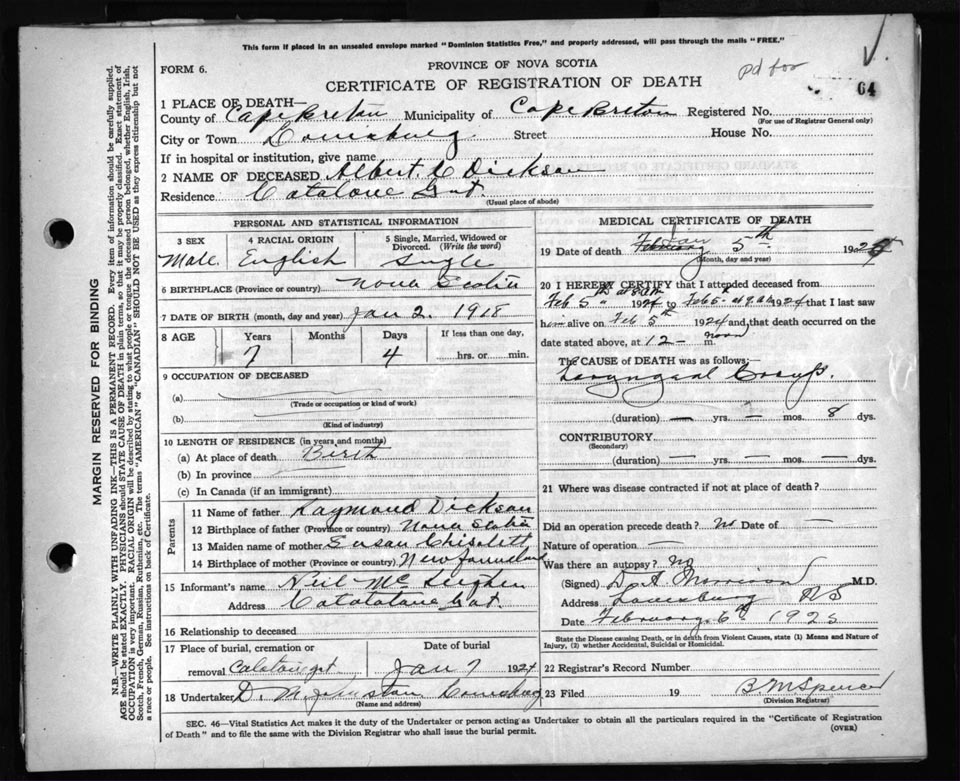 This form if placed in an unsealed envelope marked "Dominion Statistics Free," and properly addressed, will pass through the mails "FREE."
FORM 6.
PROVINCE OF NOVA SCOTIA
pd for
64
CERTIFICATE OF REGISTRATION OF DEATH
1 PLACE OF DEATH—
County of Cape Breton Municipality of Cape Breton Registered No.
(For use of Registrar General only)
City or Town Louisburg Street House No.
If in hospital or institution, give name
2 NAME OF DECEASED Albert Dickson
Residence Catalone Gut.
(Usual place of abode)
PERSONAL AND STATISTICAL INFORMATION
3 SEX 4 RACIAL ORIGIN 5 Single, Married, Widowed or Divorced. (Write the word)
Male English Single
6 BIRTHPLACE (Province or country) Nova Scotia
7 DATE OF BIRTH (month, day and year) Jan 2. 1918
8 AGE Years Months Days If less than one day,
7 4 hrs. or min.
9 OCCUPATION OF DECEASED
(a)
(Trade or occupation or kind of work)
(b)
(Kind of industry)
10 LENGTH OF RESIDENCE (in years and months)
(a) At place of death Birth
(b) In province
(c) In Canada (if an immigrant)
Parents
11 Name of father Raymond Dickson
12 Birthplace of father (Province or country) Nova Scotia
13 Maiden name of mother Susan
14 Birthplace of mother (Province or country) Newfoundland
15 Informant's name Neil
Address Gut.
16 Relationship to deceased
17 Place of burial, cremation or removal Date of burial
Jan 7 1924
18 Undertaker D. M. Johnston Louisburg
(Name and address)
MEDICAL CERTIFICATE OF DEATH
19 Date of death February Jan 5th 192
(Month, day and year)
20 I HEREBY CERTIFY that I attended deceased from
Feb 5th 1924 to Feb 5 1924 that I last saw
him alive on Feb 5th 1924 and, that death occurred on
date stated above, at 12 — m. noon
The CAUSE OF DEATH was as follows:—
Laryngeal Croup.
(duration) — yrs. — mos. 8 dys.
CONTRIBUTORY
(Secondary)
(duration) — yrs. — mos. — dys.
21 Where was disease contracted if not at place of death?
Did an operation precede death? No Date of —
Nature of operation —
Was there an autopsy? No
(Signed) Morrison M.D.
Address Louisburg NS
Date February 6th 1925
State the Disease causing Death, or in death from Violent Causes, state (1) Means and Nature of Injury, (2) whether Accidental, Suicidal or Homicidal.
22 Registrar's Record Number
23 Filed 19 B. M. Spencer
(Division Registrar)
SEC. 46—Vital Statistics Act makes it the duty of the Undertaker or person acting as Undertaker to obtain all the particulars required in the "Certificate of Registration of Death" and to file the same with the Division Registrar who shall issue the burial permit.
(OVER)
MARGIN RESERVED FOR BINDING
N.B.—WRITE PLAINLY WITH UNFADING INK—THIS IS A PERMANENT RECORD. Every item of information should be carefully supplied.
AGE should be stated EXACTLY. PHYSICIANS should STATE CAUSE OF DEATH in plain terms, so that it may be properly classified. Exact statement of
OCCUPATION is very important. RACIAL ORIGIN will be described by stating to what people or tongue the deceased person belonged, whether English, Irish,
Scotch, French, German, Russian, Ruthenian, etc. The terms "AMERICAN" or "CANADIAN" SHOULD NOT BE USED as they express citizenship but not
a race or people. See instructions on back of Certificate.